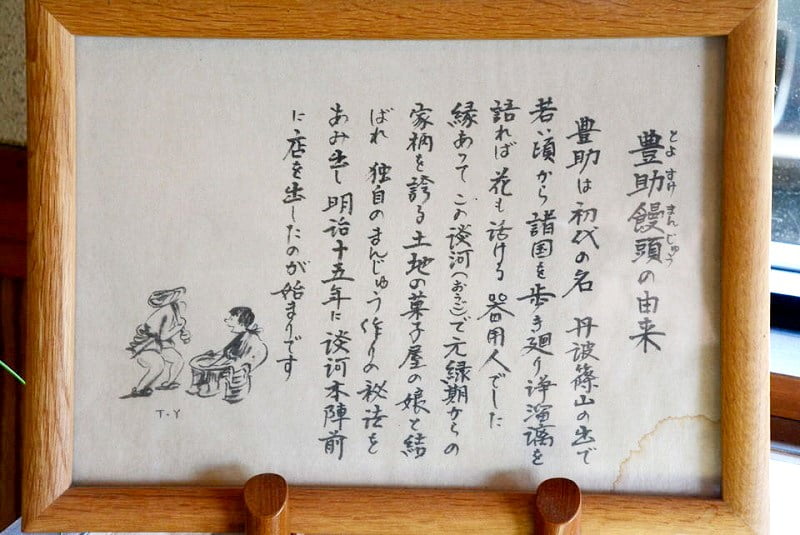 とよすけまんじゅう
豊助饅頭の由来
豊助は初代の名 丹波篠山の出で
若い頃から諸国を歩き廻り浄瑠璃を
語れば花も活ける 器用人でした
縁あって この淡河(おうご)で元禄期からの
家柄を誇る土地の菓子屋の娘と結
ばれ 独自のまんじゅう作りの秘法を
あみ出し 明治十五年に 淡河本陣前
に店を出したのが始まりです
T.Y